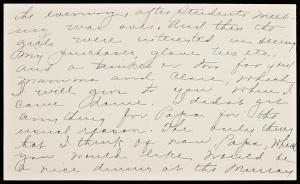 the evening, after Students' meet-
ing was over. And then the
girls were interested in seeing
my purchases, glove ties etc.
and a trinket or two for you
Mamma and Clare, which
I will give to you when I
come home. I didn't get
anything for Papa for the
usual reason. The only thing
that I think of now, Papa, which
you would like, would be
a nice dinner at the Murray